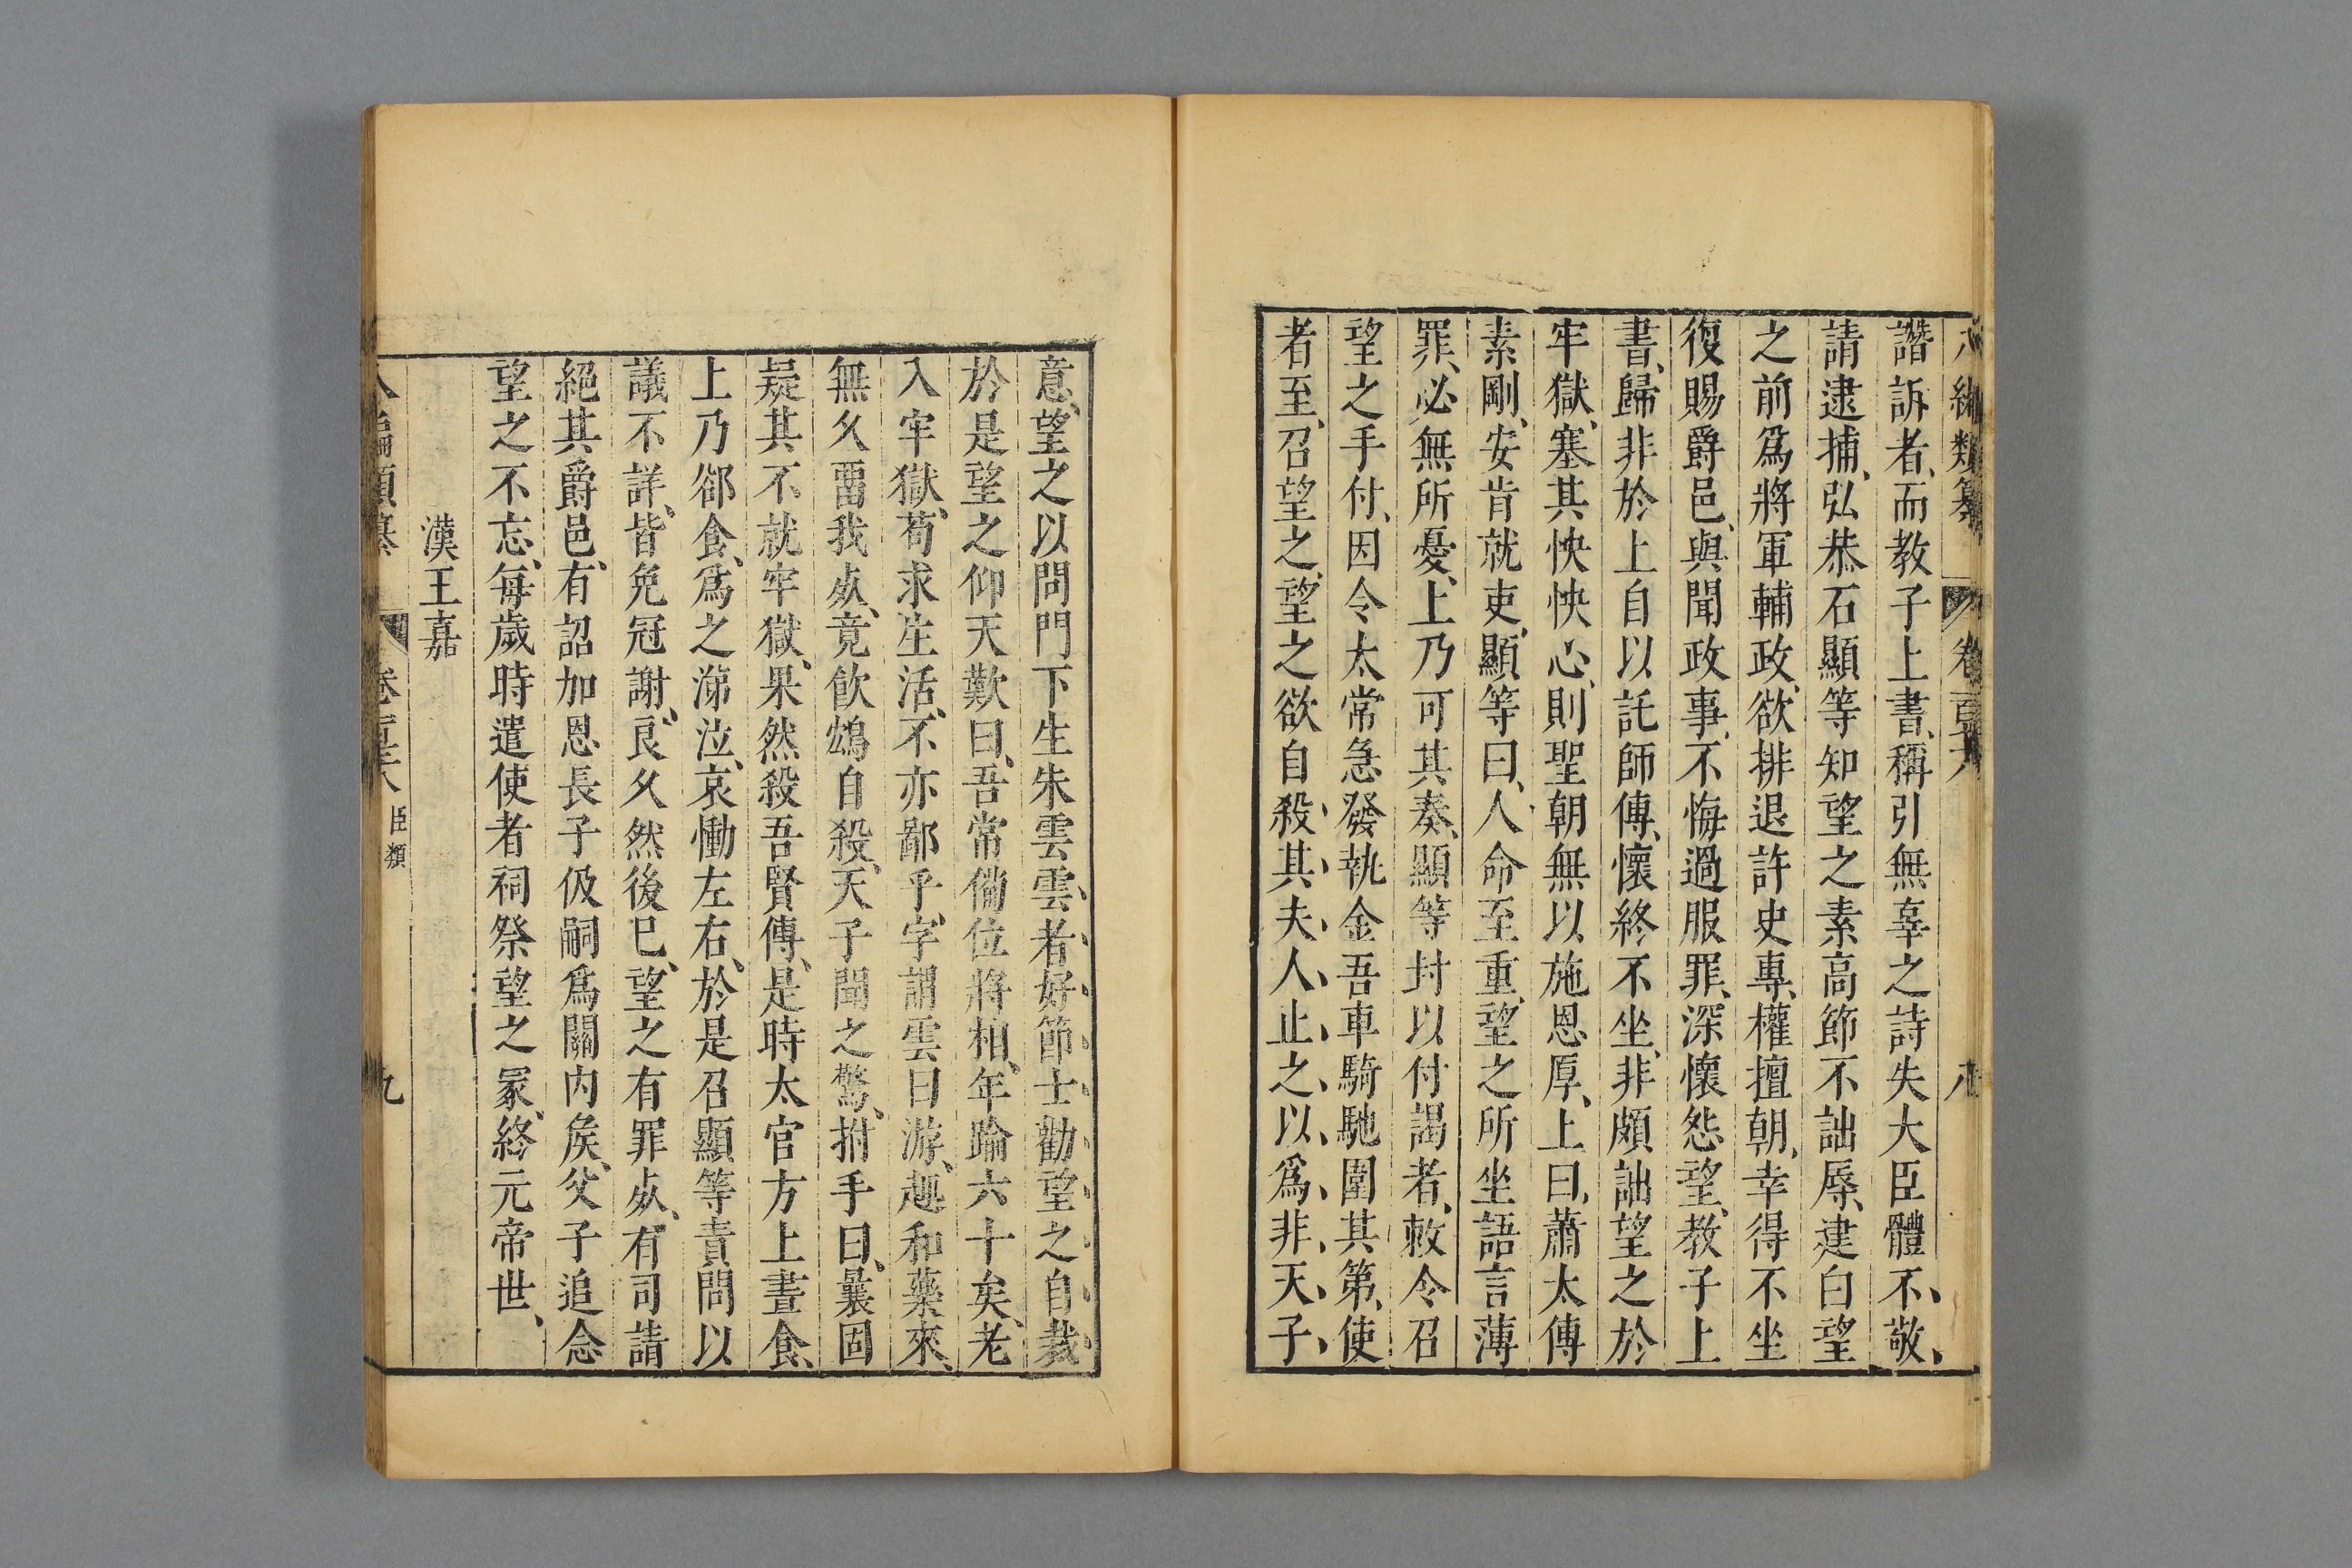 八編類纂 卷百六 八
譖訴者、而教子上書、稱引無辜之詩失大臣體、不、敬、
請逮捕、弘恭石顯等知望之素高節不詘辱、建白望
之前爲將軍輔政、欲排退許史專、權擅朝、幸得不坐
復賜爵邑、與聞政事、不悔過服罪、深懷怨望、教子上
書、歸非於上自以託師傅、懷終不坐、非頗詘望之於
牢獄、塞其怏怏心、則聖朝無以施恩厚、上曰、蕭太傅
素剛、安肯就吏、顯等曰、人命至重、望之所坐語言薄
罪、必無所憂、上乃可其奏、顯等封以付謁者、敕令召
望之手付、因令太常急發執金吾車騎馳圍其第、使
者至、召望之、望之欲自殺、其、夫、人、止、之、以、爲、非、天、子、
意、望之以問門下生朱雲、雲、者、好、節、士、勸、望、之、自、裁、
於是望之仰天歎曰、吾常備位將相、年踰六十矣、老
入牢獄、苟求生活、不亦鄙乎、字謂雲曰游、趣和藥來、
無久畱我歿、竟飮鴆自殺、天子聞之驚、拊手曰、曩固
疑其不就牢獄、果然殺吾賢傅、是時太官方上晝食、
上乃郤食、爲之涕泣、哀慟左右、於是召顯等責問以
議不詳、皆免冠謝、良久然後已、望之有罪死、有司請
絕其爵邑、有詔加恩長子伋嗣爲關內矦、父子追念
望之不忘、每歲時遣使者祠祭望之冡、終元帝世、
漢王嘉
八編類纂 卷 臣類 九